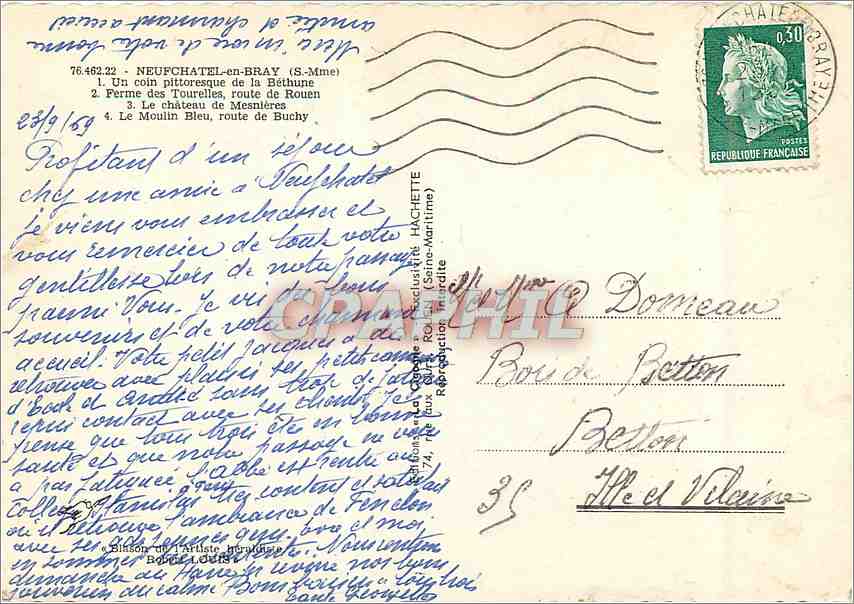 76.462.22 - NEUFCHATEL-en-BRAY (S.-Mme)
1. Un coin pittoresque de la Béthune
2. Ferme des Tourelles, route de Rouen
3. Le château de Mesnières
4. Le Moulin Bleu, route de Buchy
23/9/69
Profitant d'un séjour
chez une amie à Neufchatel
je viens vous embrasser et
vous remercier de toute votre
gentillesse lors de notre passage
parmi Vous. Je vis de bons
souvenirs et de votre charmant
accueil. Votre petit Jacques a dû
retrouver avec plaisir ses petits
d'école et André sans trop de
repris contact avec ses clients. Je
pense que tous trois êtes en bonne
santé et que notre passage ne vous
a pas fatigués. L'abbé est rentré au
Collège Stanislas très content et
où il retrouve l'ambiance de Fénelon
avec ses et moi
en sommes Nous rentrons
dimanche au Havre nos bons
souvenirs du calme Bons baisers à tous trois
Merci encore de votre bonne
amitié et charmant accueil
« Blason de l'Artiste héraldiste
Robert LOUIS »
Editions « La Cigogne » Exclusivité HACHETTE
74, rue aux Ours, ROUEN (Seine-Maritime)
Reproduction interdite
CPAPHIL
0,30
POSTES
REPUBLIQUE FRANÇAISE
Mr et Mme A Dorneau
Bois de Betton
Betton
35 Ille et Vilaine